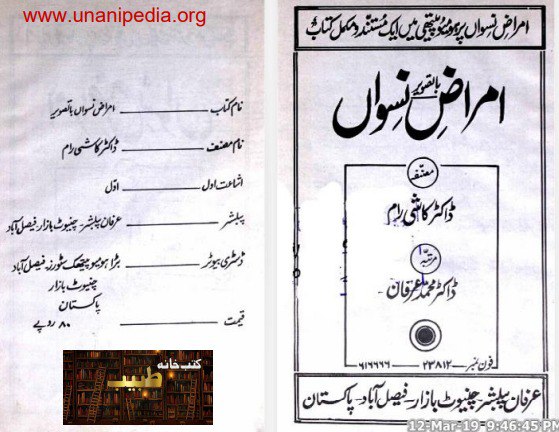 www.unanipedia.org
امراضِ نسواں پر ہومیوپیتھی میں ایک مستند و مکمل کتاب
باتصویر
امراضِ نسواں
مصنف
ڈاکٹر کاشی رام
مرتبہ
ڈاکٹر محمد عرفان
فون نمبر ۲۳۸۱۲ – ۶۱۶۶۶۶
عرفان پبلشرز - چنیوٹ بازار - فیصل آباد - پاکستان
نام کتاب امراض نسواں باتصویر
نام مصنف ڈاکٹر کاشی رام
اشاعت اول اوّل
پبلشر عرفان پبلشرز - چنیوٹ بازار فیصل آباد
ڈسٹری بیوٹر بڑا ہومیوپیتھک سٹورز - فیصل آباد
چنیوٹ بازار
پاکستان
قیمت ۸۰ روپے
کتب خانہ
طبیب
12-Mar-19 9:46:45 PM